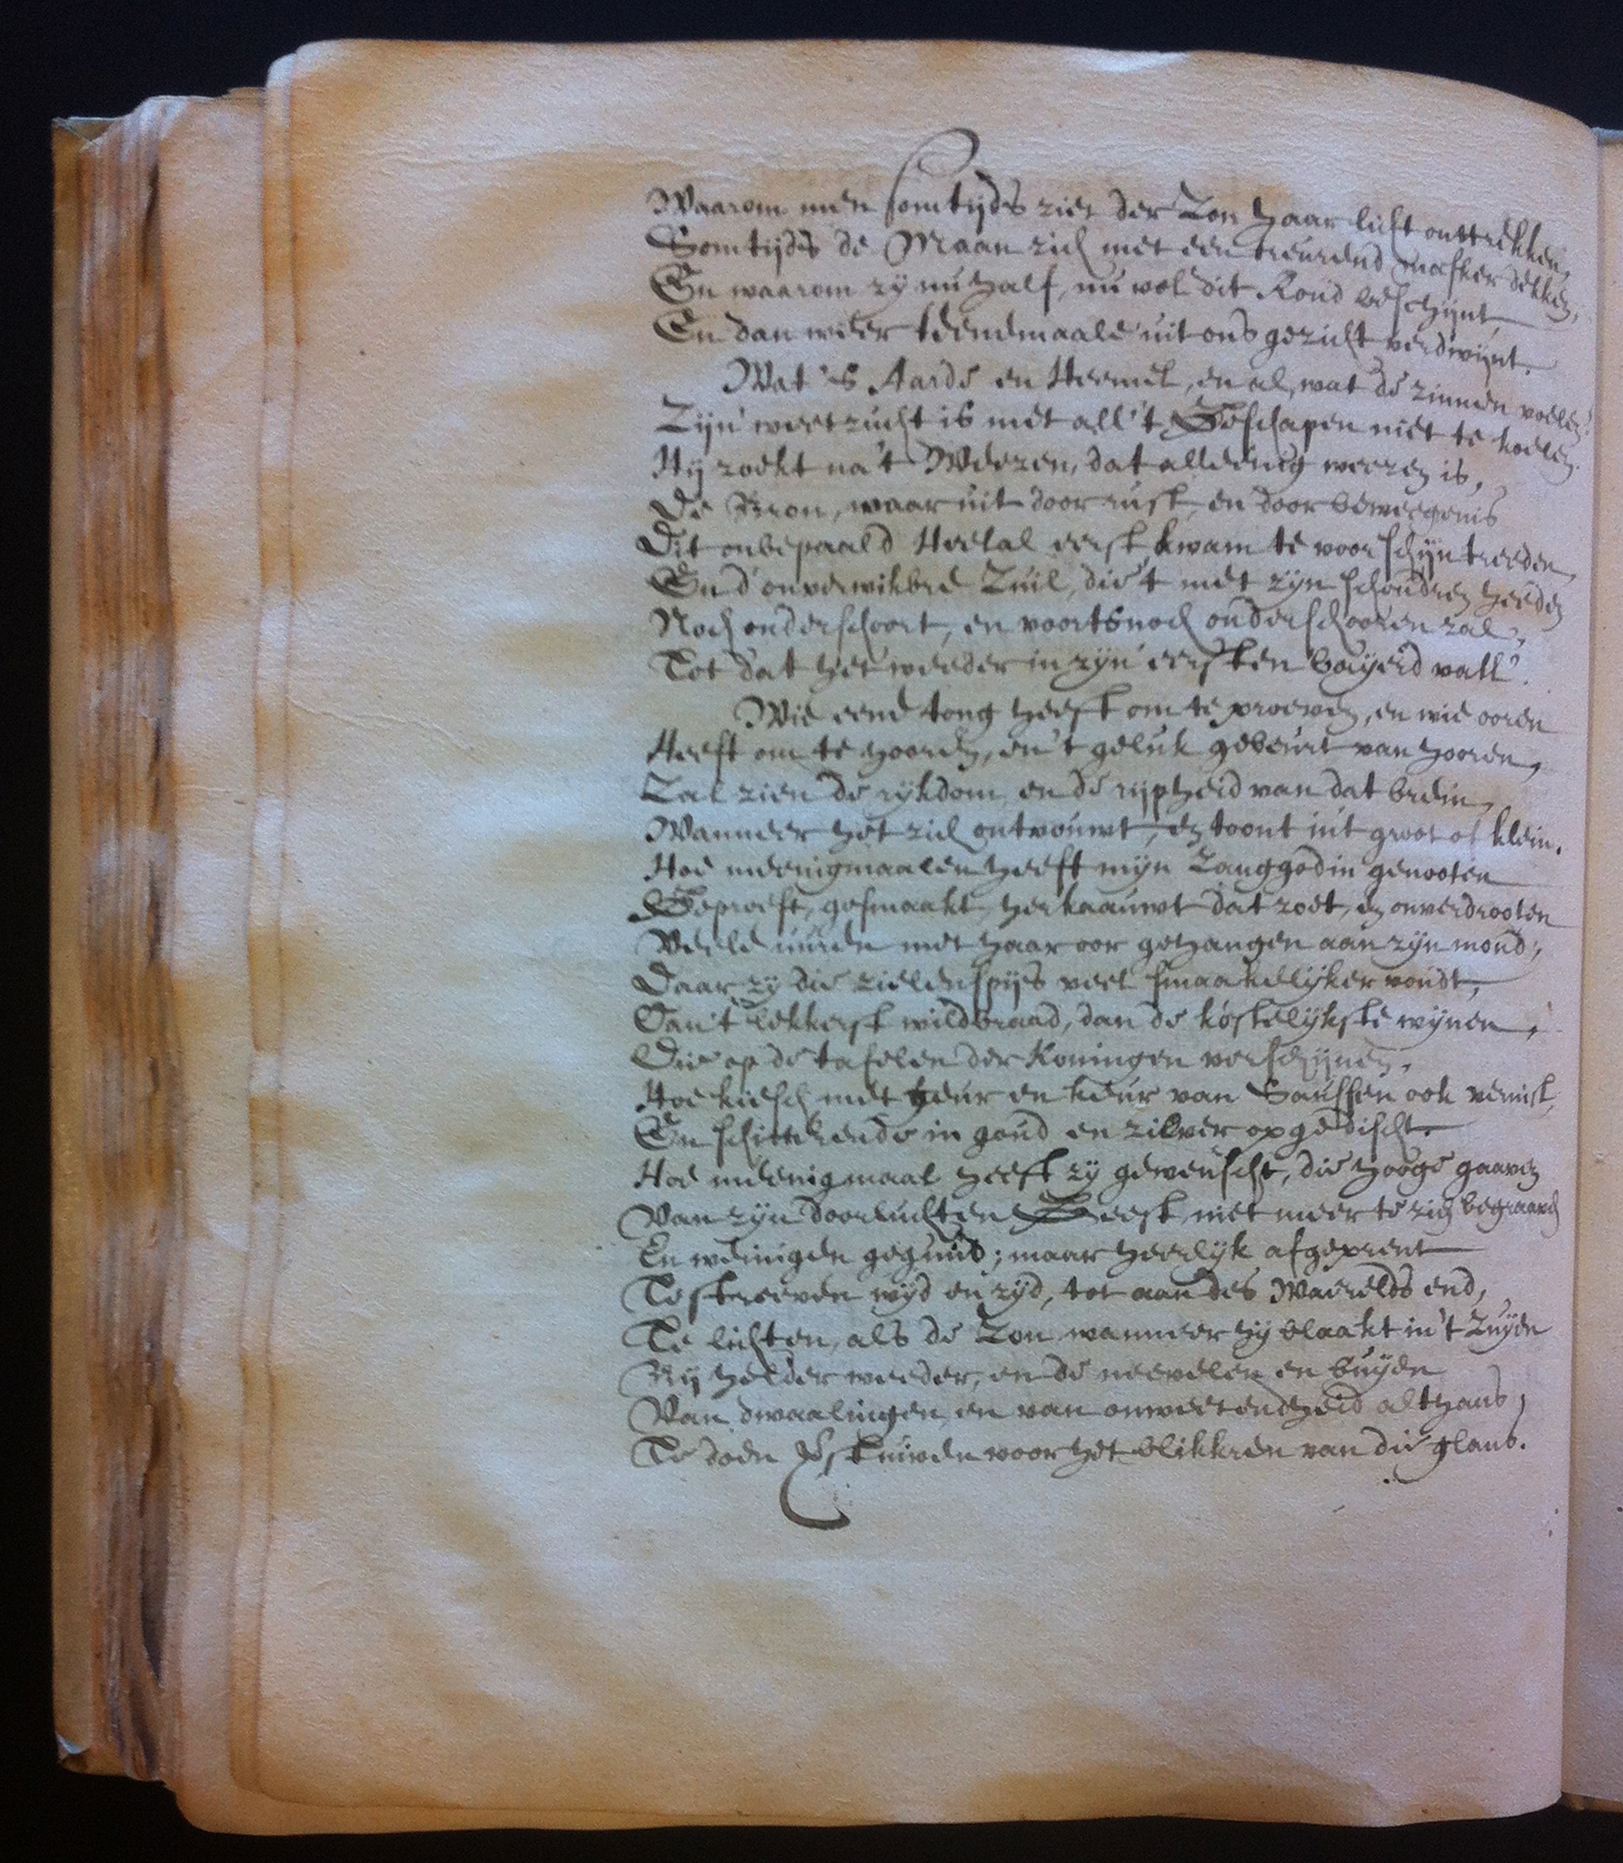 Waarom men somtijds ziet der Zon haar licht onttrekken,
Somtijds de Maan zich met een treurend masker dekken,
En waarom zy nu half, nu vol dit Rond beschynt,
En dan weer teenemaale uit ons gezicht verdwynt.
Wat 's Aarde en Hemel, en al, wat de zinnen voelen?
Zijn' weetzucht is met all 't Geschapen niet te koelen.
Hij zoekt na 't Weezen, dat alleenig weezen is,
De Bron, waar uit door rust, en door beweegenis
Dit onbepaald Heelal eerst kwam te voorschijn treeden,
En d' onverwikbre Zuil, die 't met zyn schoudren heeden
Noch onderschoort, en voorts noch onderschooren zal,
Tot dat het weeder in zyn' eersten bayerd vall'.
Wie eene tong heeft om te proeven, en wie ooren
Heeft om te hooren, en 't geluk gebeurt van hooren,
Zal zien de rykdom en de rijpheid van dat brein,
Wanneer het zich ontvouwt, en toont in 't groot of klein.
Hoe meenigmaalen heeft mijn Zanggodin genooten
Geproeft, gesmaakt, herkaauwt dat zoet, en onverdrooten
Veele uuren met haar oor gehangen aan zyn mond;
Daar zy die zielenspijs veel smaakelyker vondt,
Dan 't lekkerst wildbraad, dan de kostelykste wynen,
Die op de tafelen der Koningen verschynen,
Hoe kiesch met geur en keur van Saussen ook vermist,
En schitterende in goud en zilver opgedischt.
Hoe meenigmaal heeft zy gewenscht, die hooge gaaven
Van zyn doorluchten Geest, niet meer te zien begraaven
En weinigen gegunt; maar heerlyk afgeprent
Te streeven wyd en zyd, tot aan des Waerelds end,
Te lichten, als de Zon wanneer hy blaakt in 't Zuyen
By helder weeder, en de neevelen en buyen
Van dwaalingen en van onweetendheid althans,
Te doen verstuiven voor het blikkren van die glans.